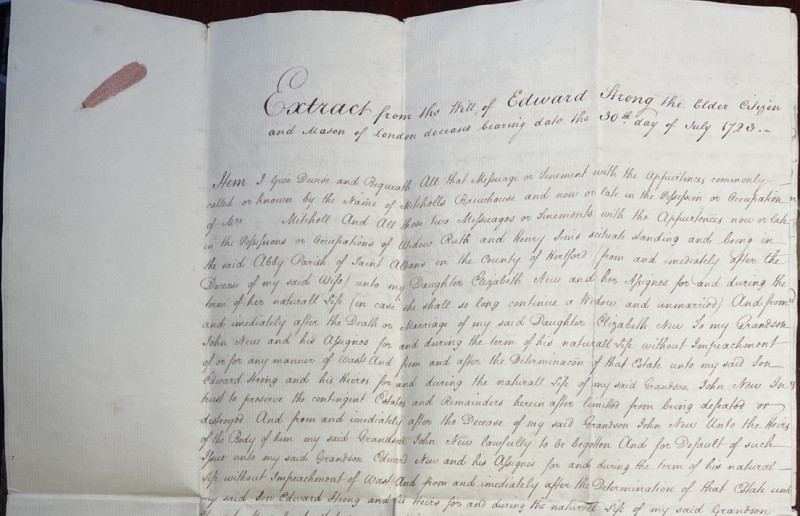 Extract from the Will of Edward Strong the Elder Citizin
and Mason of London deceased bearing date the 30th day of July 1723.-
Item I Give Devise and Bequeath All that Messuage or Tenement with the Appurtences commonly
called or known by the Name of Mitchells Brewhouse and now or late in the Possession or Occupation
of Mrs Mitchell And All those two Messuages or Tenements with the Appurtences now or late
in the Possessions or Occupations of Widow Ruth and Henry Sims scituate standing and being in
the said Abby Parish of Saint Albans in the County of Hertford (from and imediately after the
Decease of my said Wife) unto my Daughter Elizabeth New and her Assignes for and during the
term of her naturall Life (in case she shall so long continue a Widow and unmarried) And from
and imediately after the Death or Marriage of my said Daughter Elizabeth New To my Grandson
John New and his Assignes for and during the term of his naturall Life without Impeachment
of or for any manner of Wast And from and after the Determinacon of that Estate unto my said Son
Edward Strong and his Heires for and during the naturall Life of my said Grandson John New In
trust to preserve the contingent Estates and Remainders herein after limitted from being defeated or
destroyed And from and imediately after the Decease of my said Grandson John New Unto the Heirs
of the Body of him my said Grandson John New lawfully to be begotten And for Default of such
Issue unto my said Grandson Edward New and his Assignes for and during the term of his natural
Life without Impeachment of Wast And from and imediately after the Determination of that Estate unto
my said Son Edward Strong and his Heirs for and during the naturall Life of my said Grandson